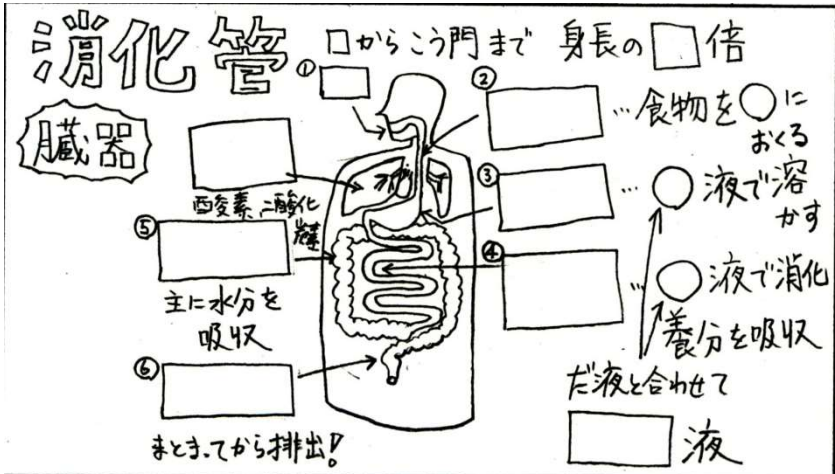 消化管
口からこう門まで 身長の□倍
臓器
①
②
…食物を○におくる
酸素 二酸化炭素
③
…○液で溶かす
⑤
主に水分を吸収
④
…○液で消化
養分を吸収
⑥
まとまってから排出!
だ液と合わせて
□液